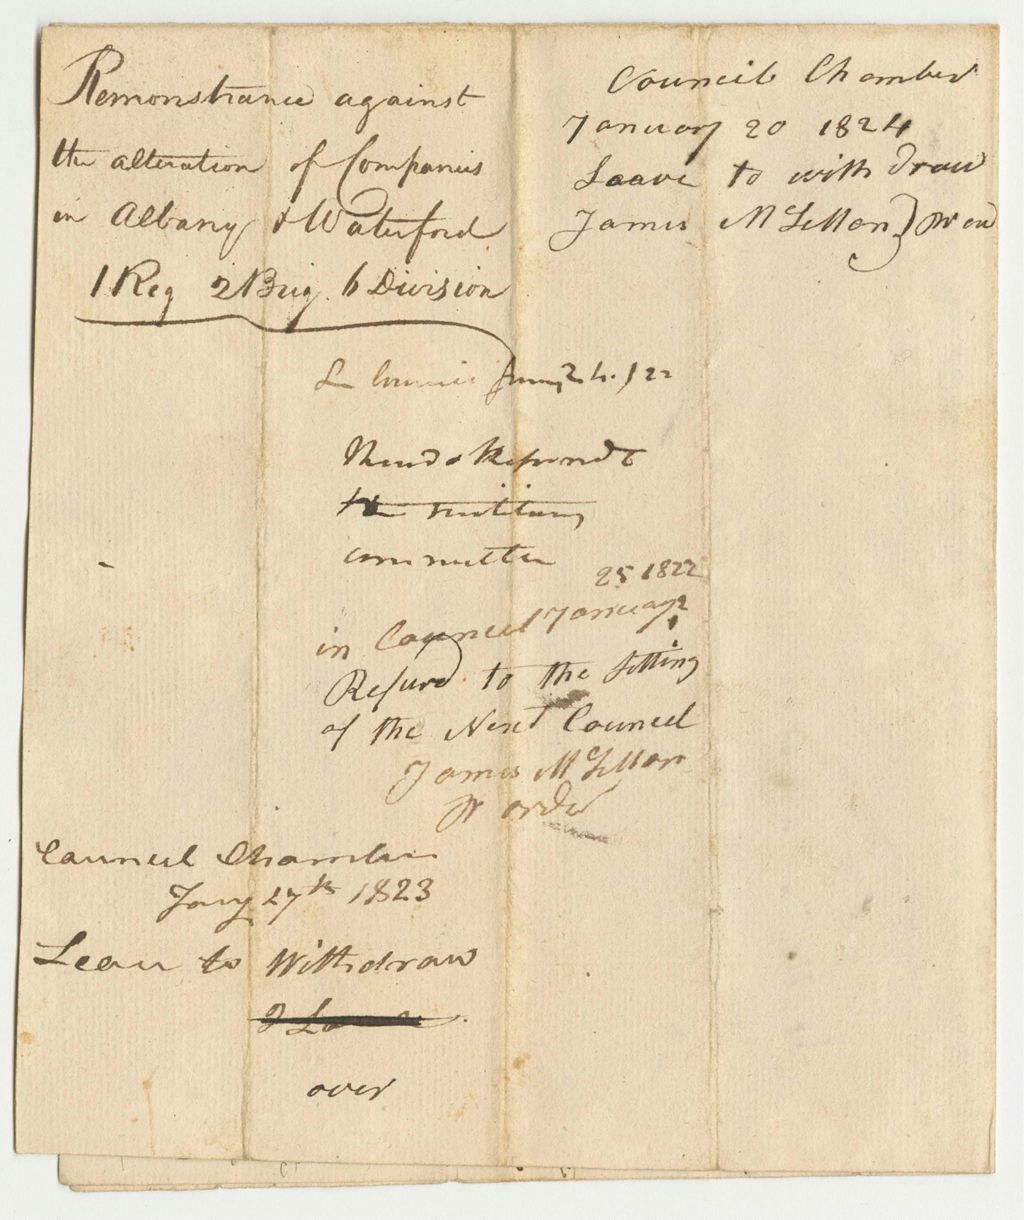 Remonstrance against
the alteration of Companies
in Albany & Waterford
1 Reg 2 Brig. 6 Division
In Council Jany 24. 122
Read &
the military
committee
25 1822
in Council January
Refured to the Setting
of the Next Council
James McLellan
pr order
Council Chamber
Jany 27th 1823
Leave to Withdraw
over
Council Chamber
January 20 1824
Leave to with draw
James McLellan } pr